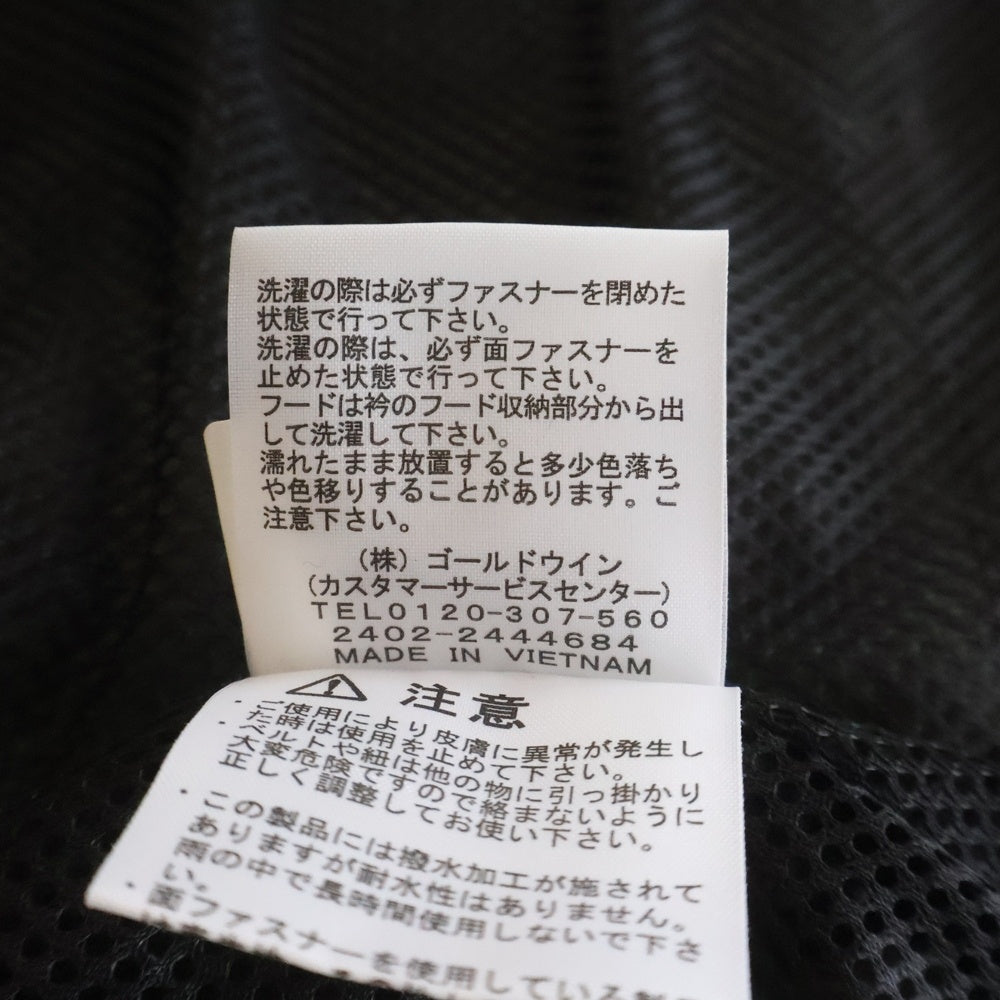 洗濯の際は必ずファスナーを閉めた
状態で行って下さい。
洗濯の際は、必ず面ファスナーを
止めた状態で行って下さい。
フードは衿のフード収納部分から出
して洗濯して下さい。
濡れたまま放置すると多少色落ち
や色移りすることがあります。ご
注意下さい。
(株)ゴールドウイン
(カスタマーサービスセンター)
TEL0120-307-560
2402-2444684
MADE IN VIETNAM
注意
・ご使用により皮膚に異常が発生し
た時は使用を止めて下さい。
・ベルトや紐は他の物に引っ掛かり
大変危険ですので絡まないように
正しく調整してお使い下さい。
・この製品には撥水加工が施されて
ありますが耐水性はありません。
雨の中で長時間使用しないで下さ
い。
・面ファスナーを使用している製